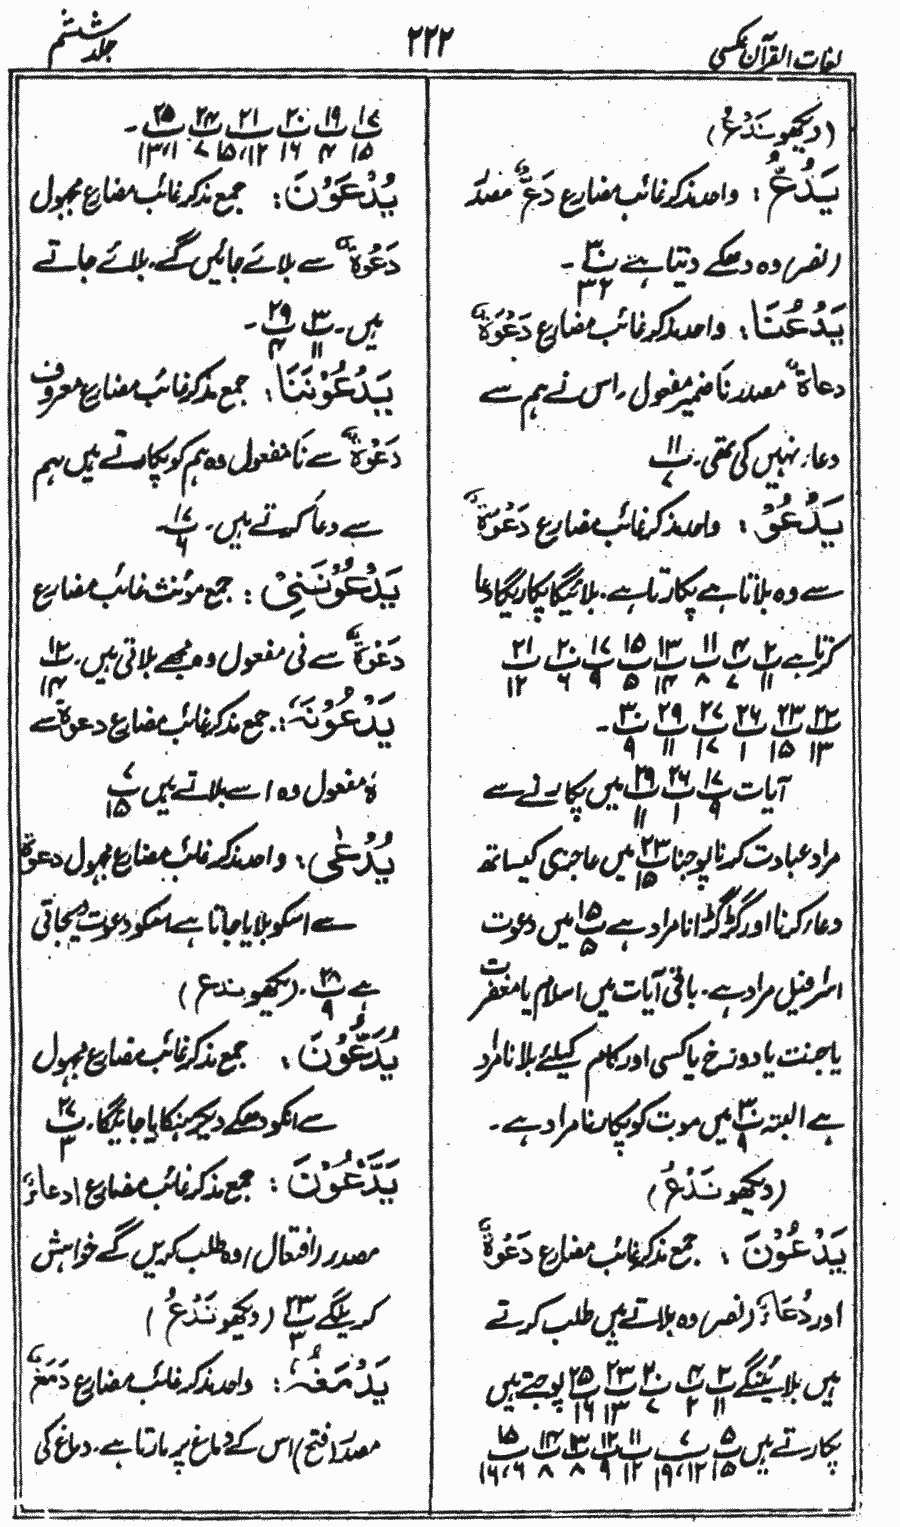 لغات القرآن عکسی
۲۲۲
جلد ششم
(دیکھو نَدْعُ)
یَدُعُّ: واحد مذکر غائب مضارع دَعٌّ مصدر
(نصر) وہ دھکے دیتا ہے پ ۳۰ / ۳۲ ۔
یَدْعُنَا: واحد مذکر غائب مضارع دَعْوَۃٌ
دعاۃٌ مصدر نَا ضمیر مفعول ۔ اس نے ہم سے
دعاء نہیں کی تھی ۔ پ ۱۱ / ۷
یَدْعُوْ: واحد مذکر غائب مضارع دَعْوَۃٌ
سے وہ بلاتا ہے پکارتا ہے ۔ بلائیگا پکاریگا دعا
کرتا ہے پ ۲ / ۱۱ پ ۴ / ۷ پ ۱۱ / ۸ پ ۱۳ / ۱۴ پ ۱۵ / ۵ پ ۱۷ / ۹ پ ۲۰ / ۶ پ ۲۱ / ۱۲
پ ۲۲ / ۱۳ پ ۲۳ / ۱۵ پ ۲۶ / ۱ پ ۲۷ / ۱۷ پ ۲۹ / ۱۱ پ ۳۰ / ۹ ۔
آیات پ ۱۷ / ۹ پ ۲۶ / ۱ پ ۲۹ / ۱۱ میں پکارنے سے
مراد عبادت کرنا پوجنا پ ۲۳ / ۱۵ میں عاجزی کیساتھ
دعاء کرنا اور گڑگڑانا مراد ہے پ ۱۵ / ۵ میں دعوت
اسرافیل مراد ہے ۔ باقی آیات میں اسلام یا مغفرت
یا جنت یا دوزخ یا کسی اور کام کیلئے بلانا مراد
ہے البتہ پ ۳۰ / ۹ میں موت کو پکارنا مراد ہے ۔
(دیکھو نَدْعُ)
یَدْعُوْنَ: جمع مذکر غائب مضارع دَعْوَۃٌ
اور دُعَاءٌ (نصر) وہ بلاتے ہیں طلب کرتے
ہیں بلائینگے پ ۲ / ۱۱ پ ۴ / ۲ پ ۲۰ / ۷ پ ۲۳ / ۱۳ پ ۲۵ / ۱۶ پوجتے ہیں
پکارتے ہیں پ ۵ / ۱۵ پ ۷ / ۱۲،۱۹ پ ۱۱ / ۱۲ پ ۱۲ / ۹ پ ۱۳ / ۸ پ ۱۴ / ۸ پ ۱۵ / ۶،۱۶
پ ۱۷ / ۱۵ پ ۱۹ / ۴ پ ۲۰ / ۱۶ پ ۲۱ / ۱۲،۱۵ پ ۲۴ / ۷ پ ۲۵ / ۱،۱۳ ۔
یُدْعَوْنَ: جمع مذکر غائب مضارع مجہول
دَعْوَۃٌ سے بلائے جائیں گے ۔ بلائے جاتے
ہیں ۔ پ ۳ / ۱۱ پ ۲۹ / ۴ ۔
یَدْعُوْنَنَا: جمع مذکر غائب مضارع معروف
دَعْوَۃٌ سے نَا مفعول وہ ہم کو پکارتے ہیں ہم
سے دعا کرتے ہیں ۔ پ ۱۷ / ۶ ۔
یَدْعُوْنَنِیْ: جمع مؤنث غائب مضارع
دَعْوَۃٌ سے نی مفعول وہ مجھے بلاتی ہیں ۔ پ ۱۲ / ۱۴
یَدْعُوْنَہٗ: جمع مذکر غائب مضارع دعوۃٌ سے
ہٗ مفعول وہ اسے بلاتے ہیں پ ۷ / ۱۵
یُدْعٰی: واحد مذکر غائب مضارع مجہول دعوۃٌ
سے اسکو بلایا جاتا ہے اسکو دعوت دیجاتی
ہے پ ۲۸ / ۹ ۔ (دیکھو ندع)
یُدَعُّوْنَ: جمع مذکر غائب مضارع مجہول
سے انکو دھکے دیکر ہنکایا جائیگا ۔ پ ۲۷ / ۳
یَدَّعُوْنَ: جمع مذکر غائب مضارع ادعاءٌ
مصدر (افتعال) وہ طلب کریں گے خواہش
کرینگے پ ۲۳ / ۳ (دیکھو نَدْعُ)
یَدْمَغُہٗ: واحد مذکر غائب مضارع دَمْغٌ
مصدر (فتح) اس کے دماغ پر مارتا ہے ۔ دماغ کی